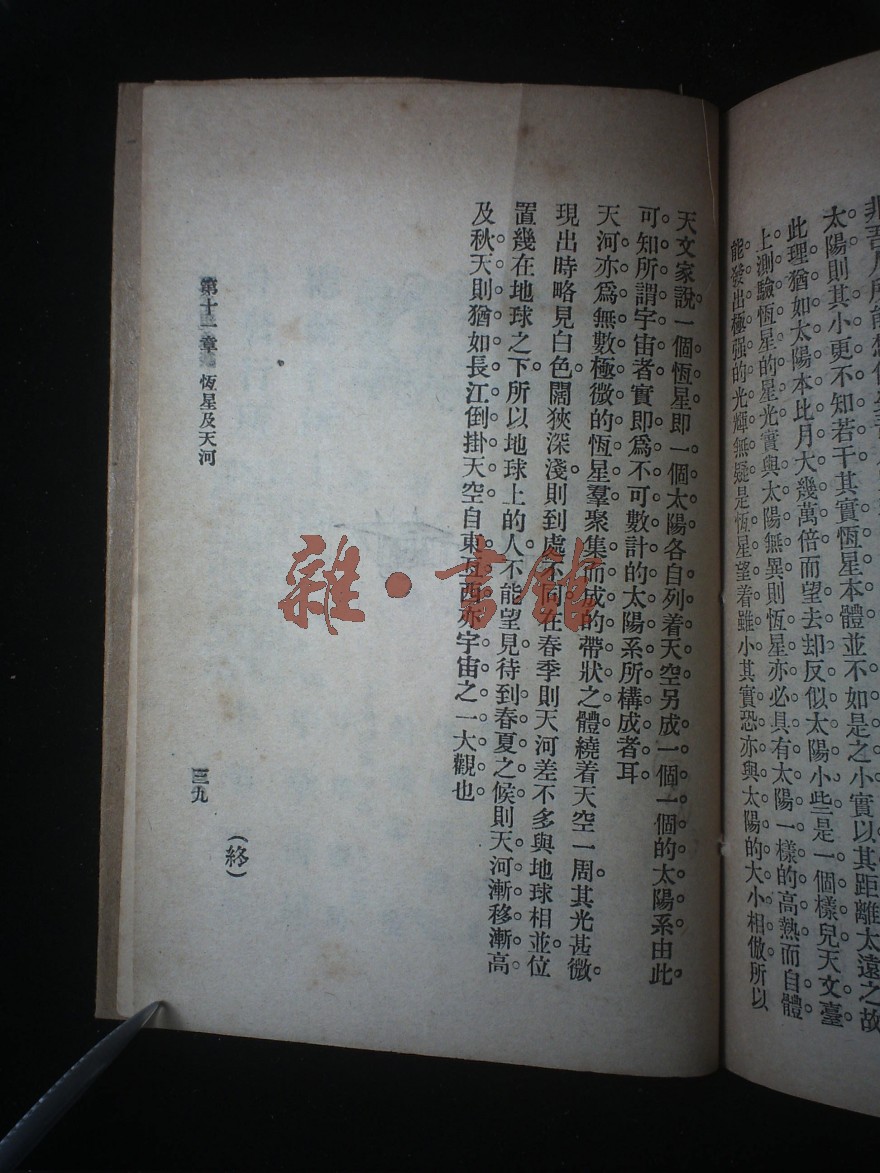 太陽則其小更不知若干其實恆星本體並不如是之小實以其距離太遠之故
此理猶如太陽本比月大幾萬倍而望去却反似太陽小些是一個樣兒天文臺
上測驗恆星的星光實與太陽無異則恆星亦必具有太陽一樣的高熱而自體
能發出極强的光輝無疑是恆星望着雖小其實恐亦與太陽的大小相倣所以
天文家說一個恆星即一個太陽各自列着天空另成一個一個的太陽系由此
可知所謂宇宙者實即爲不可數計的太陽系所構成者耳
天河亦爲無數極微的恆星羣聚集而成的帶狀之體繞着天空一周其光甚微
現出時略見白色闊狹深淺則到處不同在春季則天河差不多與地球相並位
置幾在地球之下所以地球上的人不能望見待到春夏之候則天河漸移漸高
及秋天則猶如長江倒掛天空自東亙西亦宇宙之一大觀也
第十一章 恆星及天河
三九
(終)
雜·書館